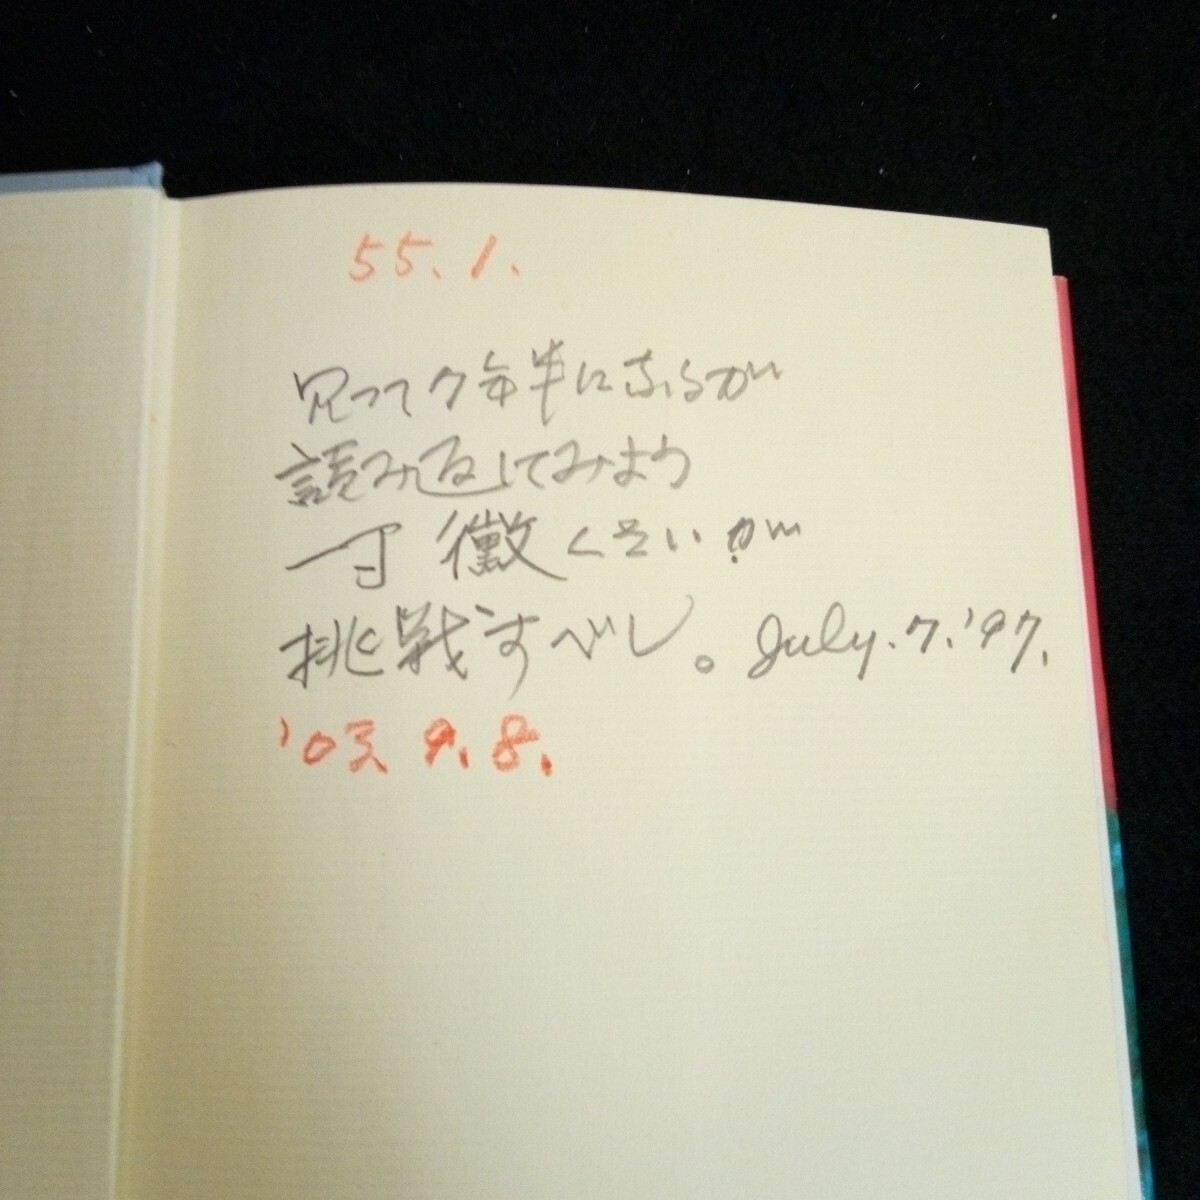 55.1.
買って7年半になるが
読み返してみよう
一寸黴くさいが
挑戦すべし。July.7.'97.
'03 9.8.